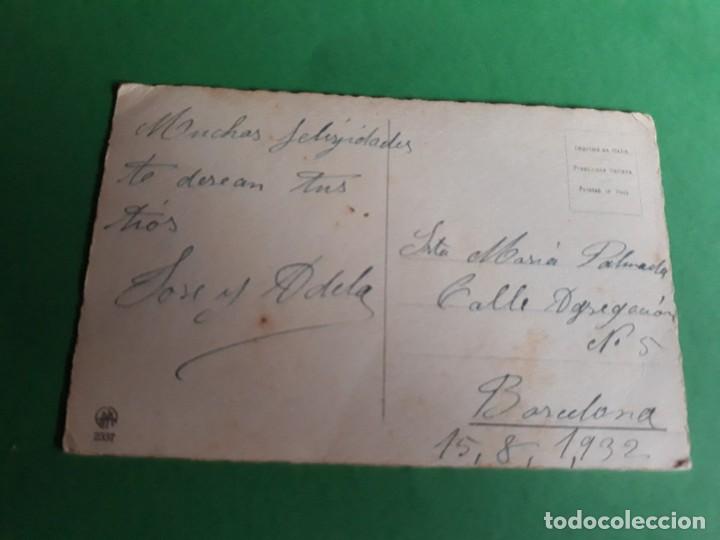 Muchas felizidades
te desean tus
tiós
Jose y Adela
2337
Imprimé en Italie
Produzione Italiana
Printed in Italy
Srta María Palmada
Calle Agregación
Nº 5
Barcelona
15, 8, 1,932
todocoleccion